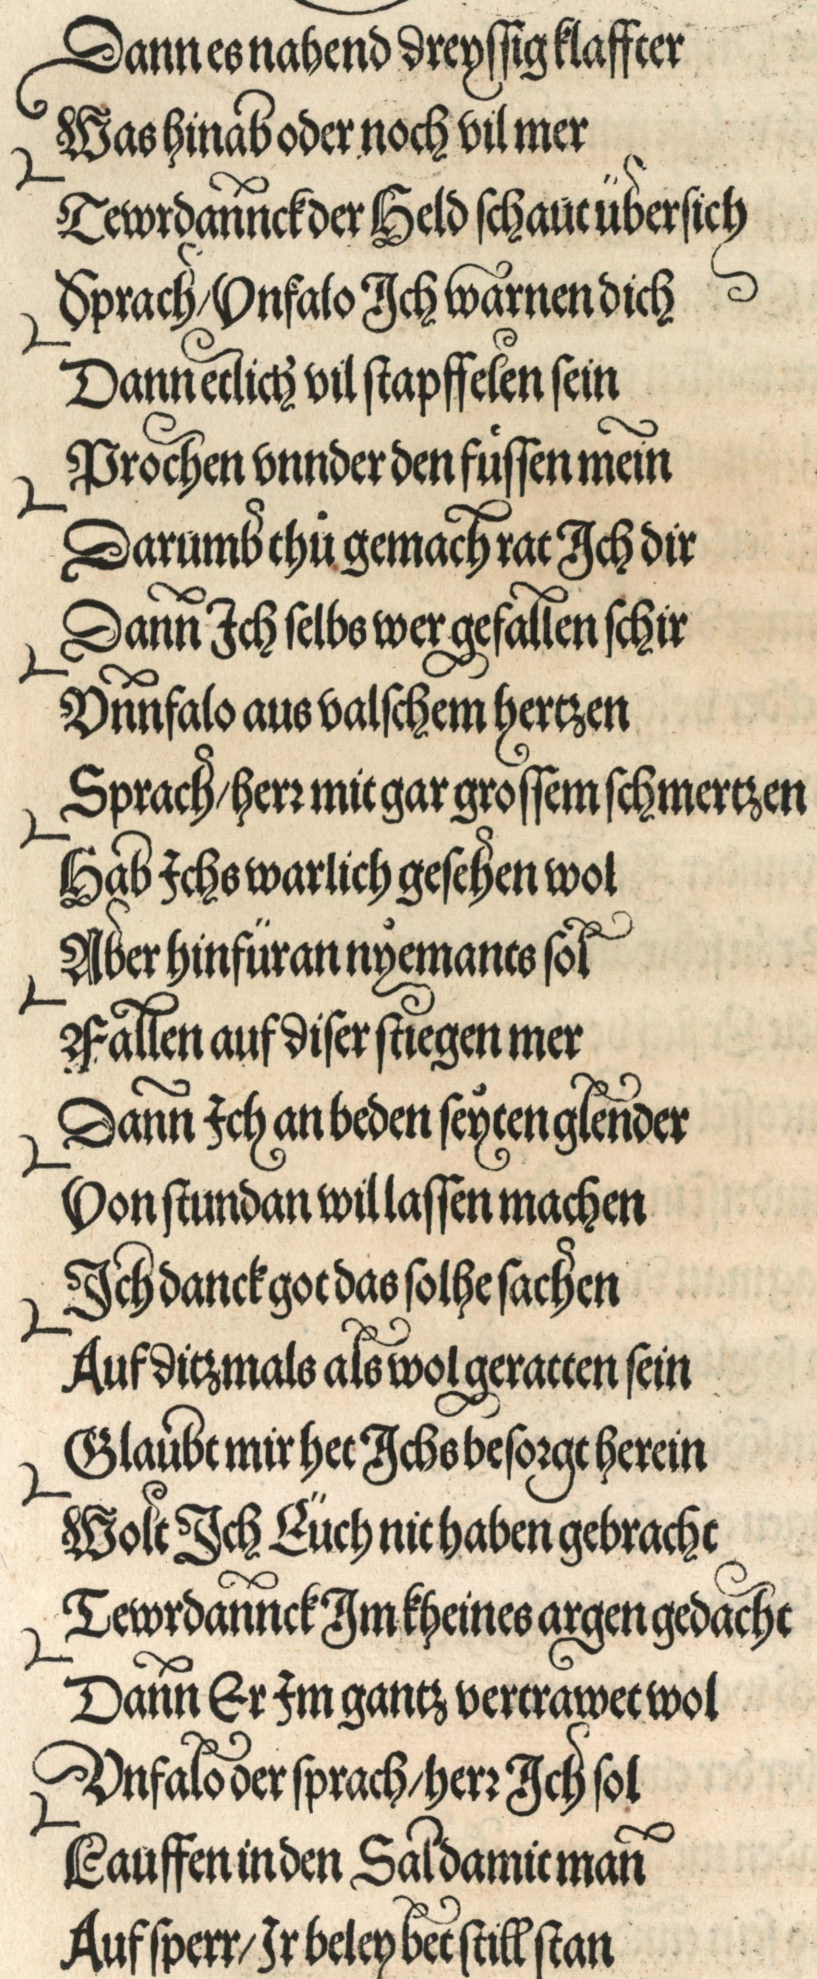 Dann es nahend dreyssig klaffter
Was hinab oder noch vil mer
Tewrdannck der Held schaut übersich
Sprach/Vnfalo Ich warnen dich
Dann etlich vil stapffelen sein
Prochen vnnder den füssen mein
Darumb thů gemach rat Ich dir
Dann Ich selbs wer gefallen schir
Vnnfalo aus valschem hertzen
Sprach/herr mit gar grossem schmertzen
Hab Ichs warlich gesehen wol
Aber hinfüran nyemants sol
Fallen auf diser stiegen mer
Dann Ich an beden seyten glender
Von stundan wil lassen machen
Ich danck got das solhe sachen
Auf ditzmals als wol geratten sein
Glaubt mir het Ichs besorgt herein
Wolt Ich Eüch nit haben gebracht
Tewrdannck Im kheines argen gedacht
Dann Er Im gantz vertrawet wol
Vnfalo der sprach/herr Ich sol
Lauffen in den Sal damit man
Auf sperr/Ir beleybet still stan